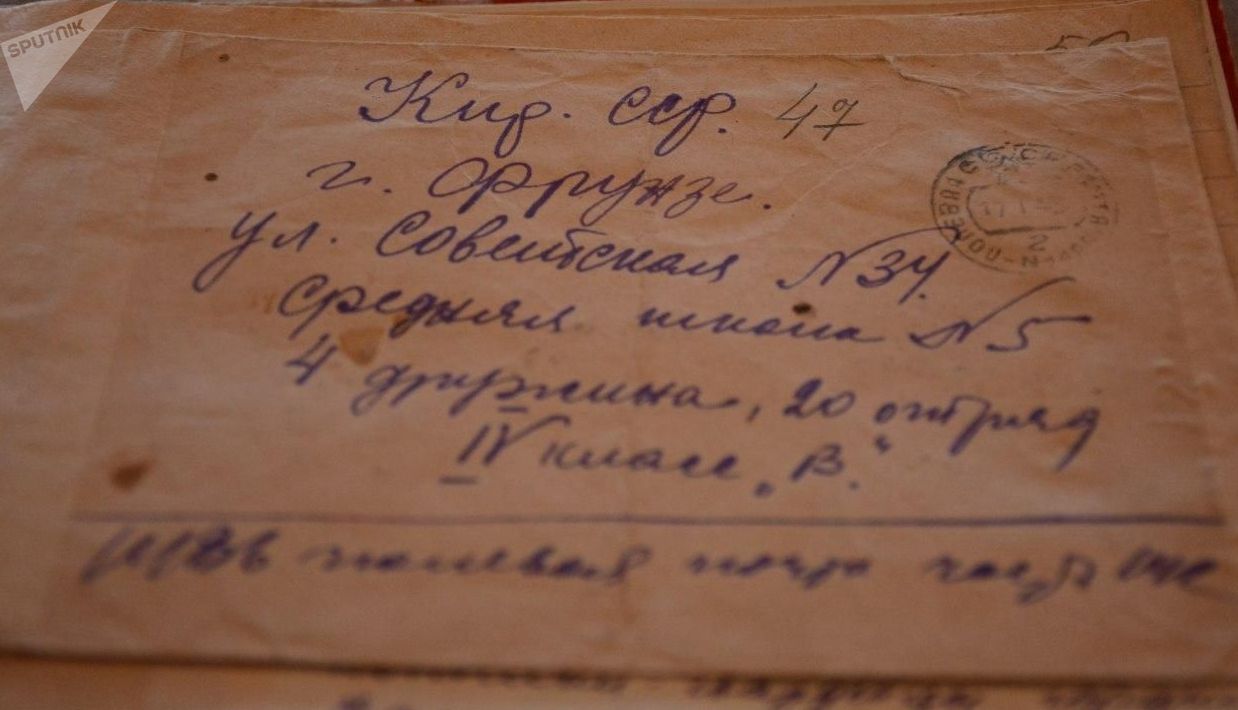 SPUTNIK
Кир. сср. 47
г. Фрунзе.
ул. Советская N 34.
Средняя школа N 5
4 дружина, 20 отряд
IV класс „В.“
полевая почта часть
2